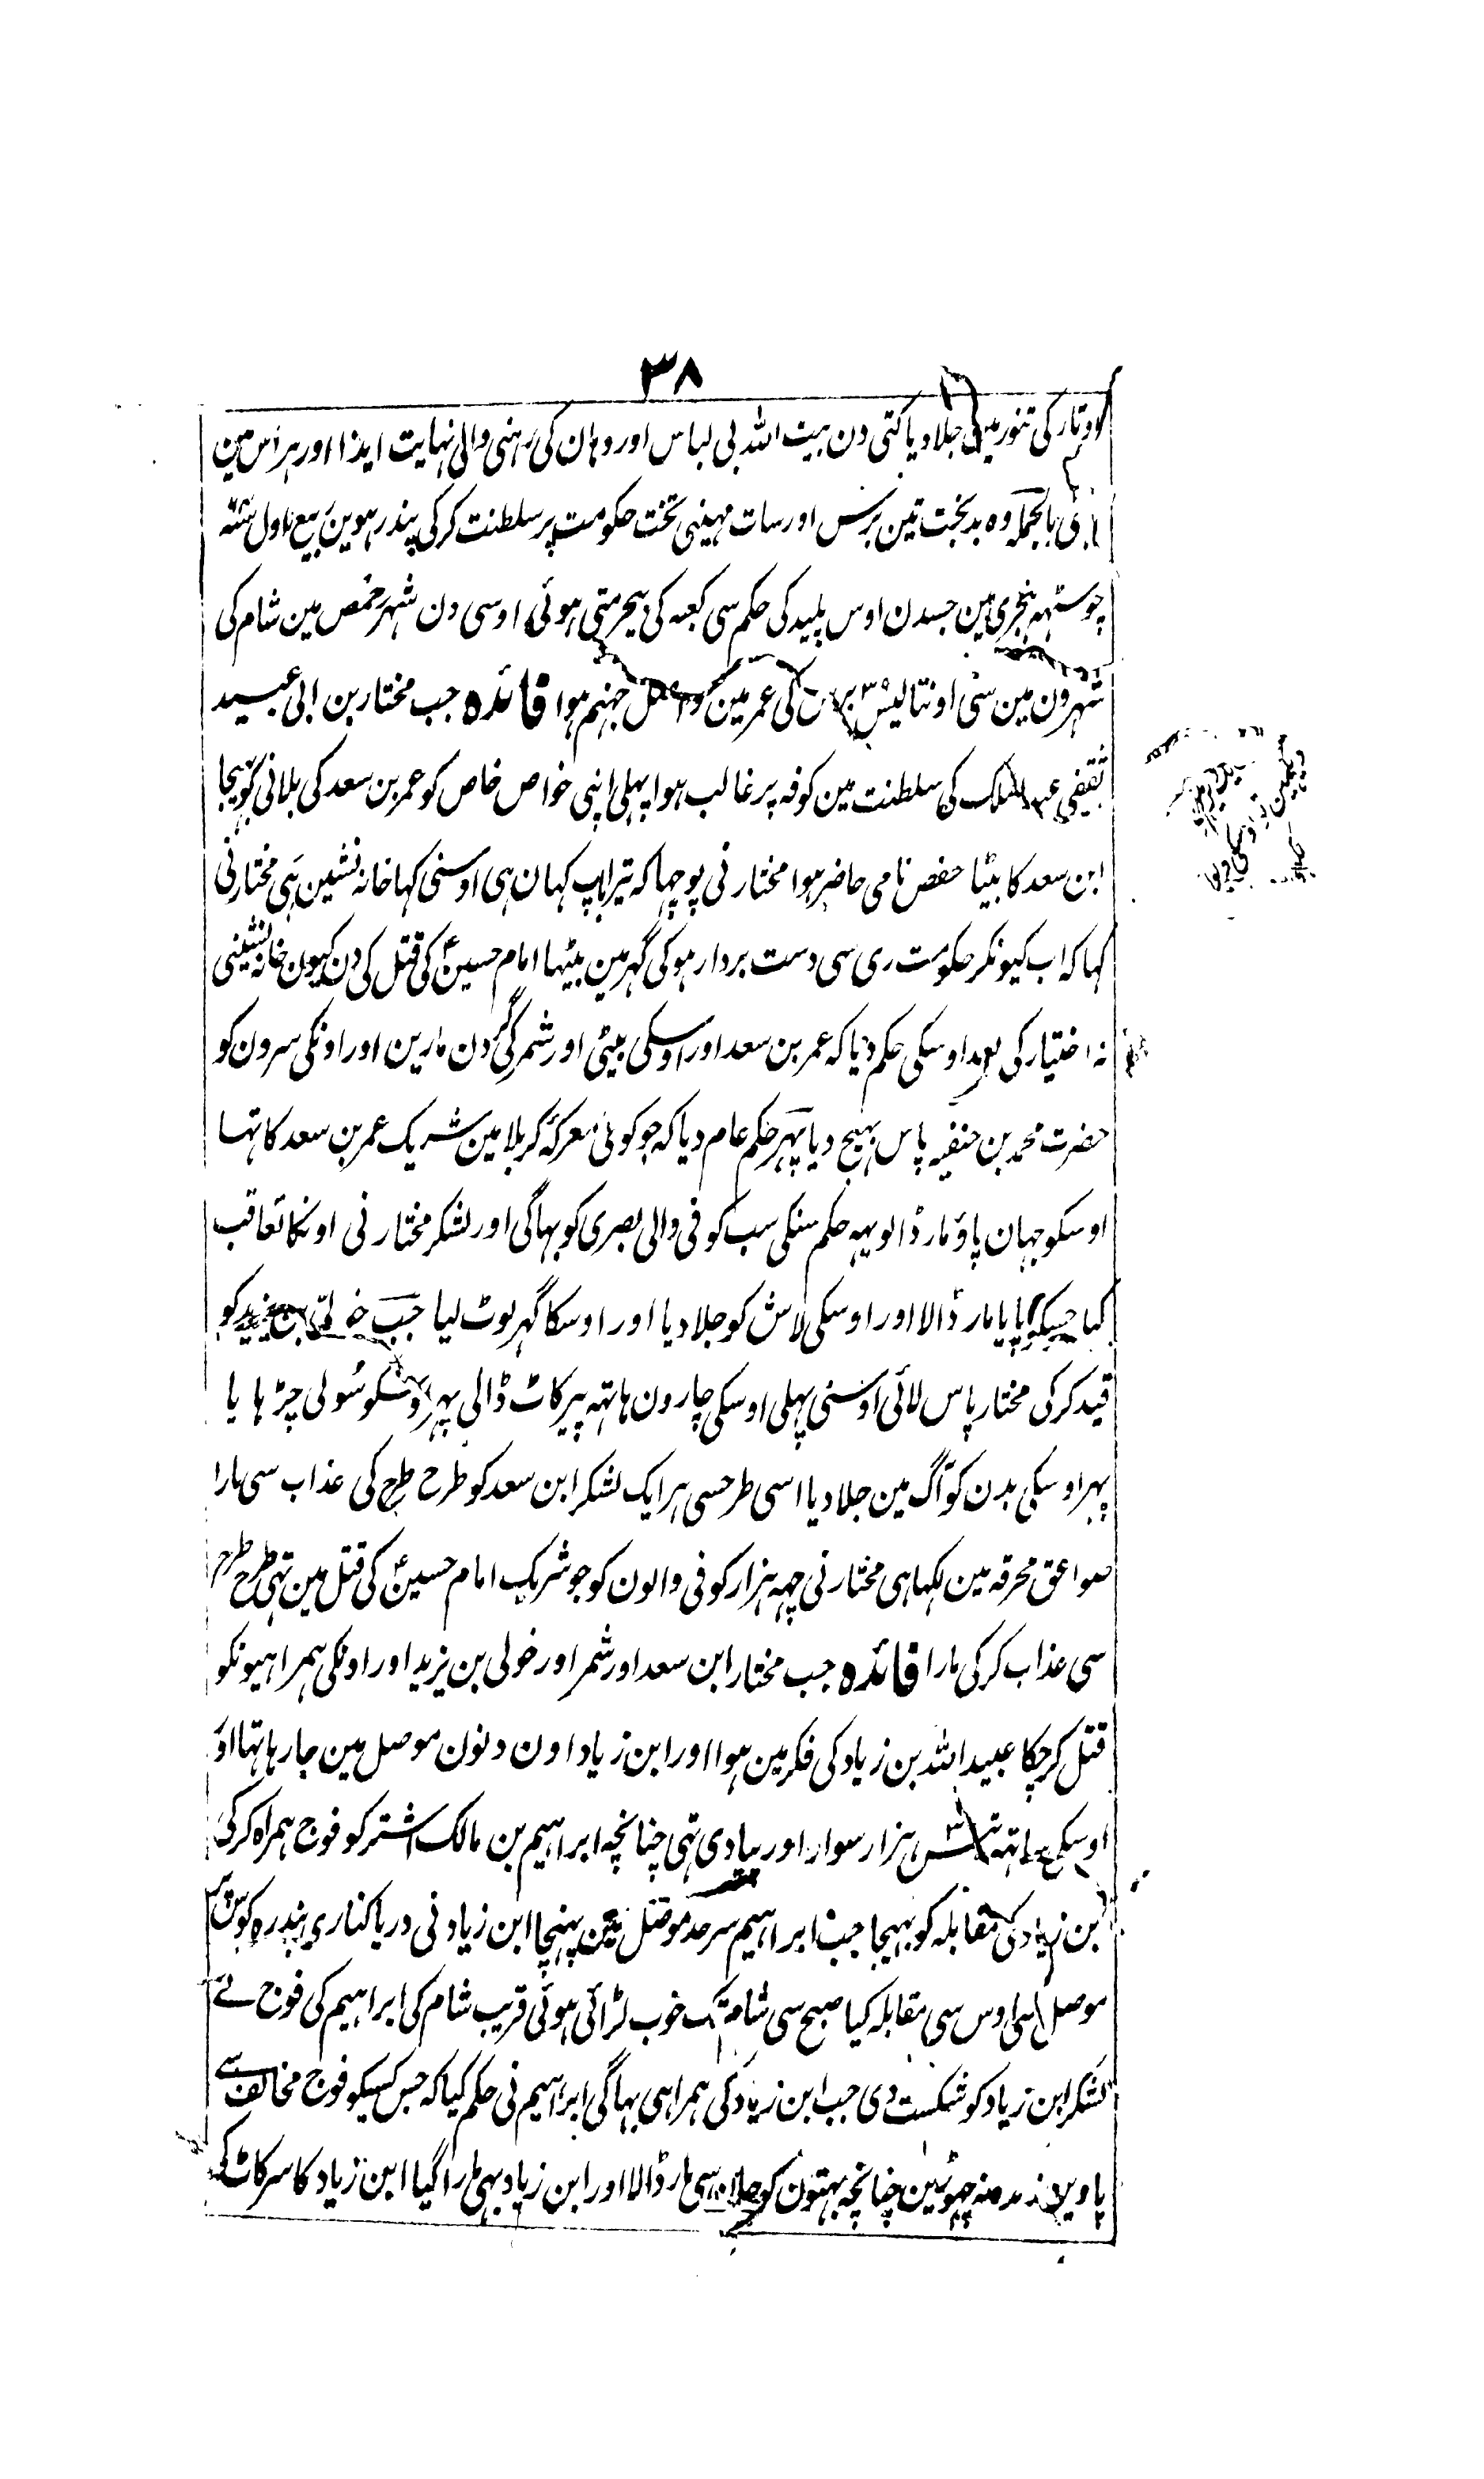 ۳۸
اوتار کی تنور میں جلا دیا کتی دن بیت اللہ بی لباس اور وہان کی رہنی والی نہایت ایذا اور ہراس مین
بالجملہ وہ بدبخت تین برس اور سات مہینی تخت حکومت پر سلطنت کر کی پندرہوین ربیع الاول سنہ
چوسٹہہ ہجری مین جسدن اوس پلید کی حکم سی کعبہ کی بیحرمتی ہوئی اوسی دن شہر حمص مین شام کی
شہرون مین سی اونتالیس ۳۹ برس کی عمر مین واصل جہنم ہوا فائدہ جب مختار بن ابی عبید
ثقیفی عبدالملک کی سلطنت مین کوفہ پر غالب ہوا پہلی اپنی خواص خاص کو عمر بن سعد کی بلانی کو بہیجا
ابن سعد کا بیٹا حفص نامی حاضر ہوا مختار نی پوچہا کہ تیرا باپ کہان ہی اوسنی کہا خانہ نشین ہی مختار نی
کہا کہ اب کیونکر حکومت ری سی دست بردار ہو کی گہر مین بیٹہا امام حسین ؑ کی قتل کی دن کیون خانہ نشینی
نہ اختیار کی بعد اوسکی حکم دیا کہ عمر بن سعد اور اوسکی بیٹی اور شمر کی گردن مارین اور اونکی سرون کو
حضرت محمد بن حنفیہ پاس بہیج دیا پہر حکم عام دیا کہ جو کوئی معرکۂ کربلا مین شریک عمر بن سعد کا تہا
اوسکو جہان پاؤ مار ڈالو یہہ حکم سنکی سب کوفی والی بصری کو بہاگی اور لشکر مختار نی اونکا تعاقب
کیا جسیکو پایا مار ڈالا اور اوسکی لاش کو جلا دیا اور اوسکا گہر لوٹ لیا جب خولی بن یزید کو
قید کر کی مختار پاس لائی اوسنی پہلی اوسکی چارون ہاتہہ پیر کاٹ ڈالی پہر اوسکو سولی چڑہایا
پہر اوسکی بدن کو آگ مین جلا دیا اسی طرحسی ہر ایک لشکر ابن سعد کو طرح طرح کی عذاب سی مارا
صواعق محرقہ مین لکہا ہی مختار نی چہہ ہزار کوفی والون کو جو شریک امام حسین ؑ کی قتل مین تہی طرح طرح
سی عذاب کر کی مارا فائدہ جب مختار ابن سعد اور شمر اور خولی بن یزید اور اونکی ہمراہیونکو
قتل کر چکا عبید اللہ بن زیاد کی فکر مین ہوا اور ابن زیاد اون دنون موصل مین جا رہا تہا اور
اوسکی ساتہہ تیس ہزار سوار اور پیادی تہی چنانچہ ابراہیم بن مالک اشتر کو فوج ہمراہ کر کی
ابن زیاد کی مقابلہ کو بہیجا جب ابراہیم سرحد موصل مین پہنچا ابن زیاد نی دریا کناری پندرہ کوس
موصل سی اوس سی مقابلہ کیا صبح سی شام تک خوب لڑائی ہوئی قریب شام کی ابراہیم کی فوج نے
لشکر ابن زیاد کو شکست دی جب ابن زیاد کی ہمراہی بہاگی ابراہیم نی حکم کیا کہ جس کسیکو فوج مخالف سے
پاوین زندہ نہ چہوڑین چنانچہ بہتون کو جان سی مار ڈالا اور ابن زیاد بہی مارا گیا ابن زیاد کا سر کاٹ کی